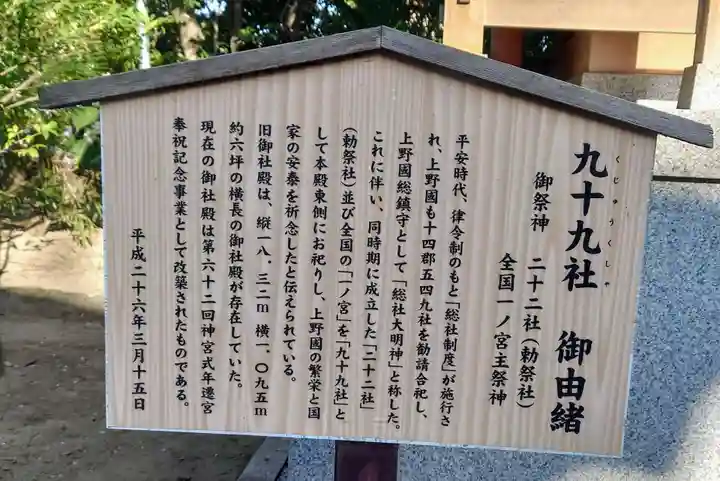 九十九社 御由緒
くじゅうくしゃ
御祭神 二十二社(勅祭社)
全国一ノ宮主祭神
平安時代、律令制のもと「総社制度」が施行さ
れ、上野國も十四郡五四九社を勧請合祀し、
上野國総鎮守として「総社大明神」と称した。
これに伴い、同時期に成立した「二十二社」
(勅祭社)並び全国の「一ノ宮」を「九十九社」と
して本殿東側にお祀りし、上野國の繁栄と国
家の安泰を祈念したと伝えられている。
旧御社殿は、縦一八.三二m 横一.〇九五m
約六坪の横長の御社殿が存在していた。
現在の御社殿は第六十二回神宮式年遷宮
奉祝記念事業として改築されたものである。
平成二十六年三月十五日